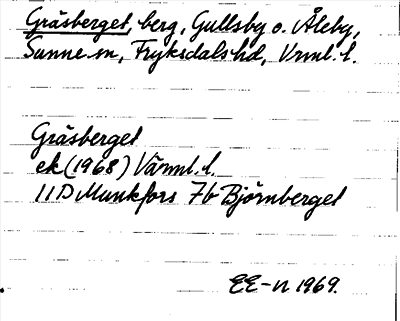 Gräsberget, berg, Gullsby o. Åleby,
Sunne sn, Fryksdals hd, Vrml. l.
Gräsberget
ek (1968) Värml. l.
11D Munkfors 7b Björnberget
EE-n 1969.